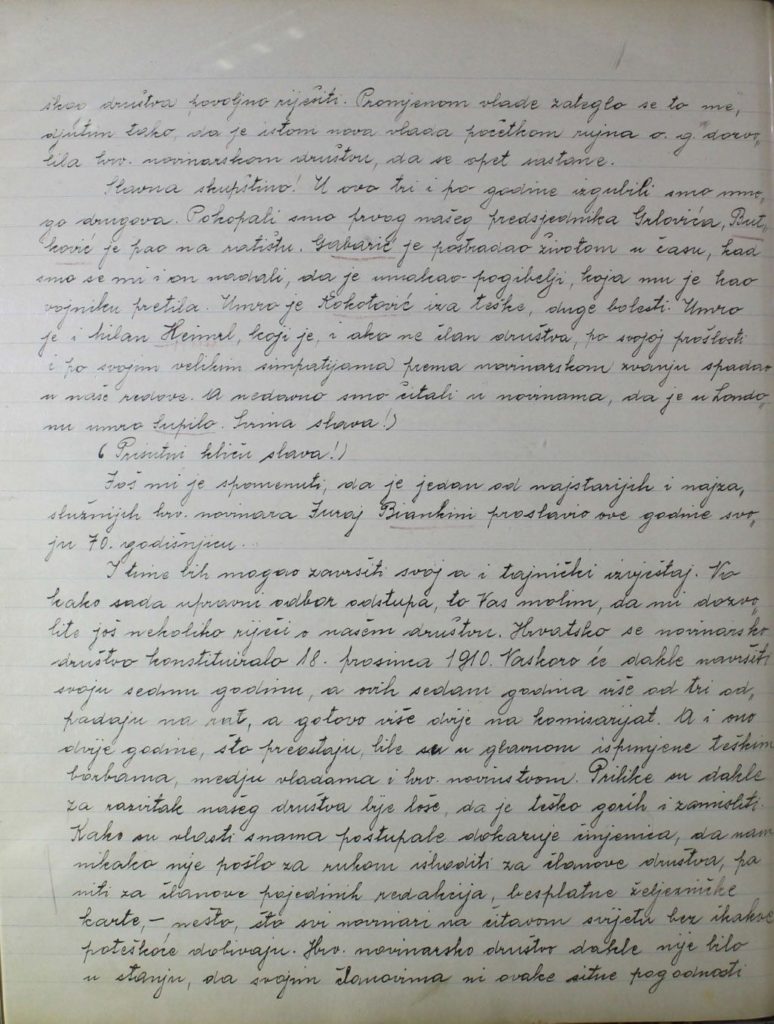 skao društva povoljno riješiti. Promjenom vlade zateglo se to me„
djutim tako, da je istom nova vlada početkom rujna o. g. dozvo„
lila hrv. novinarskom društvu, da se opet sastane.
Slavna skupštino! U ovo tri i po godine izgubili smo mno„
go drugova. Pokopali smo prvog našeg predsjednika Grlovića, But„
ković je pao na ratištu. Gabarić je postradao životom u času, kad
smo se mi i on nadali, da je umakao pogibelji, koja mu je kao
vojniku pretila. Umro je Kokotović iza teške, duge bolesti. Umro
je i Milan Heimrl, koji je, i ako ne član društva, po svojoj prošlosti
i po svojim velikim simpatijama prema novinarskom zvanju spadao
u naše redove. A nedavno smo čitali u novinama, da je u Londo„
nu umro Supilo. Svima slava!)
(Prisutni kliču slava!)
Još mi je spomenuti, da je jedan od najstarijih i najza„
služnijih hrv. novinara Juraj Biankini proslavio ove godine svo„
ju 70. godišnjicu.
I time bih mogao završiti svoj a i tajnički izvještaj. No
kako sada upravni odbor odstupa, to Vas molim, da mi dozvo„
lite još nekoliko riječi o našem društvu. Hrvatsko se novinarsko
društvo konstituiralo 18. prosinca 1910. Naskoro će dakle navršiti
svoju sedmu godinu, a ovih sedam godina više od tri od„
padaju na rat, a gotovo više dvije na komisarijat. A i ono
dvije godine, što preostaju, bile su u glavnom ispunjene teškim
borbama, medju vladama i hrv. novinstvom. Prilike su dakle
za razvitak našeg društva bile loše, da je teško gorih i zamisliti.
Kako su vlasti snama postupale dokazuje činjenica, da nam
nikako nije pošlo za rukom ishoditi za članove društva, pa
niti za članove pojedinih redakcija, besplatne željezničke
karte, – nešto, što svi novinari na čitavom svijetu bez ikakve
poteškoće dobivaju. Hrv. novinarsko društvo dakle nije bilo
u stanju, da svojim članovima ni ovake sitne pogodnosti